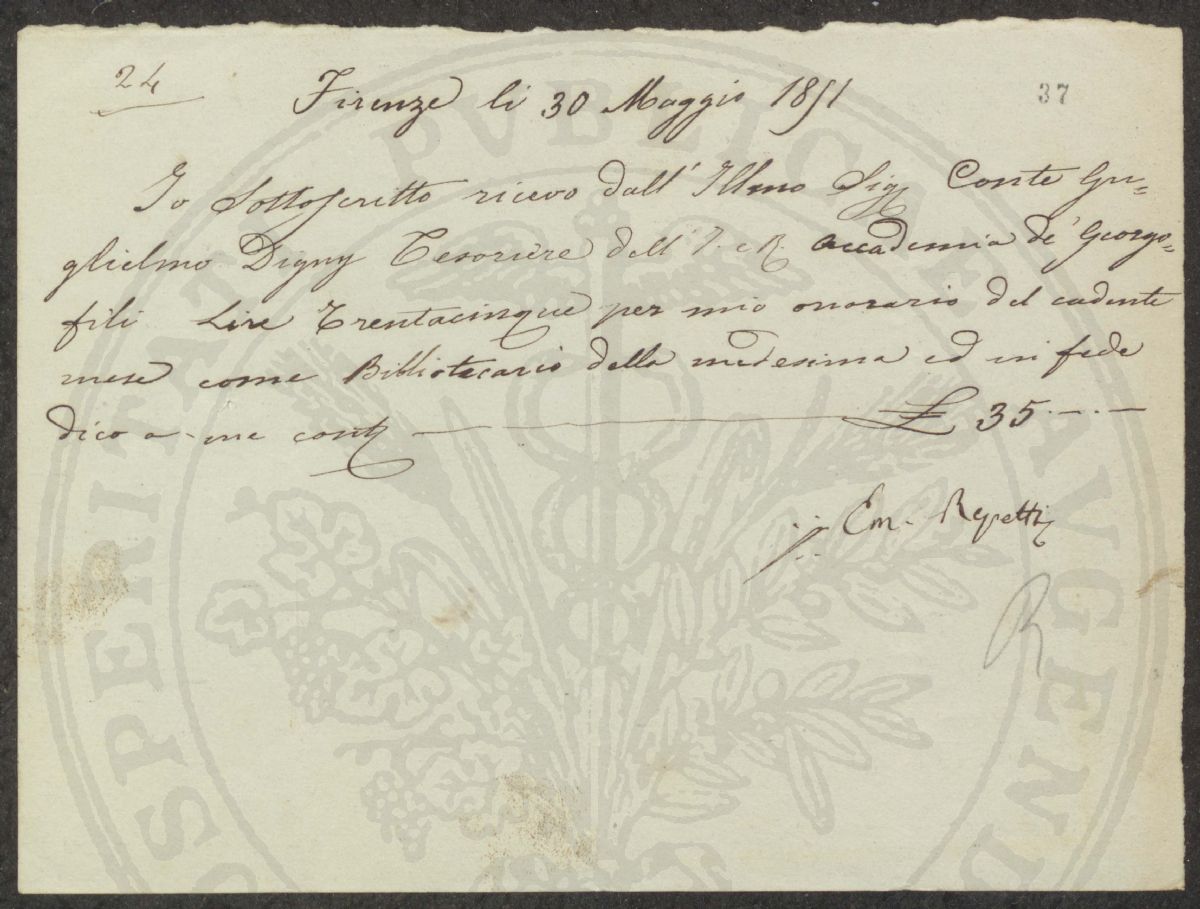 24
Firenze li 30 Maggio 1851
37
Io Sottoscritto ricevo dall' Illmo Sig Conte Gu=
glielmo Digny Tesoriere dell' I. e R. Accademia de' Georgo=
fili Lire Trentacinque per mio onorario del cadente
mese come Bibliotecario della medesima ed in fede
dico a me cont £ 35.-.-
Em. Repetti
R
PROSPERITATI PVBLICAE AVGENDAE